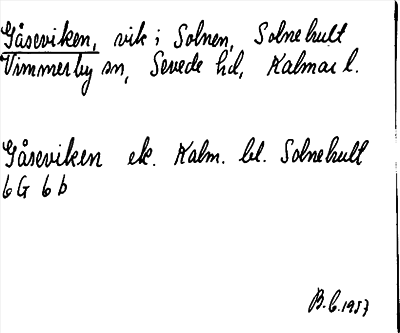 Gåseviken, vik i Solnen, Solnehult
Vimmerby sn, Sevede hd, Kalmar l.
Gåseviken ek. Kalm. bl. Solnehult
6 G 6 b
B.C. 1957